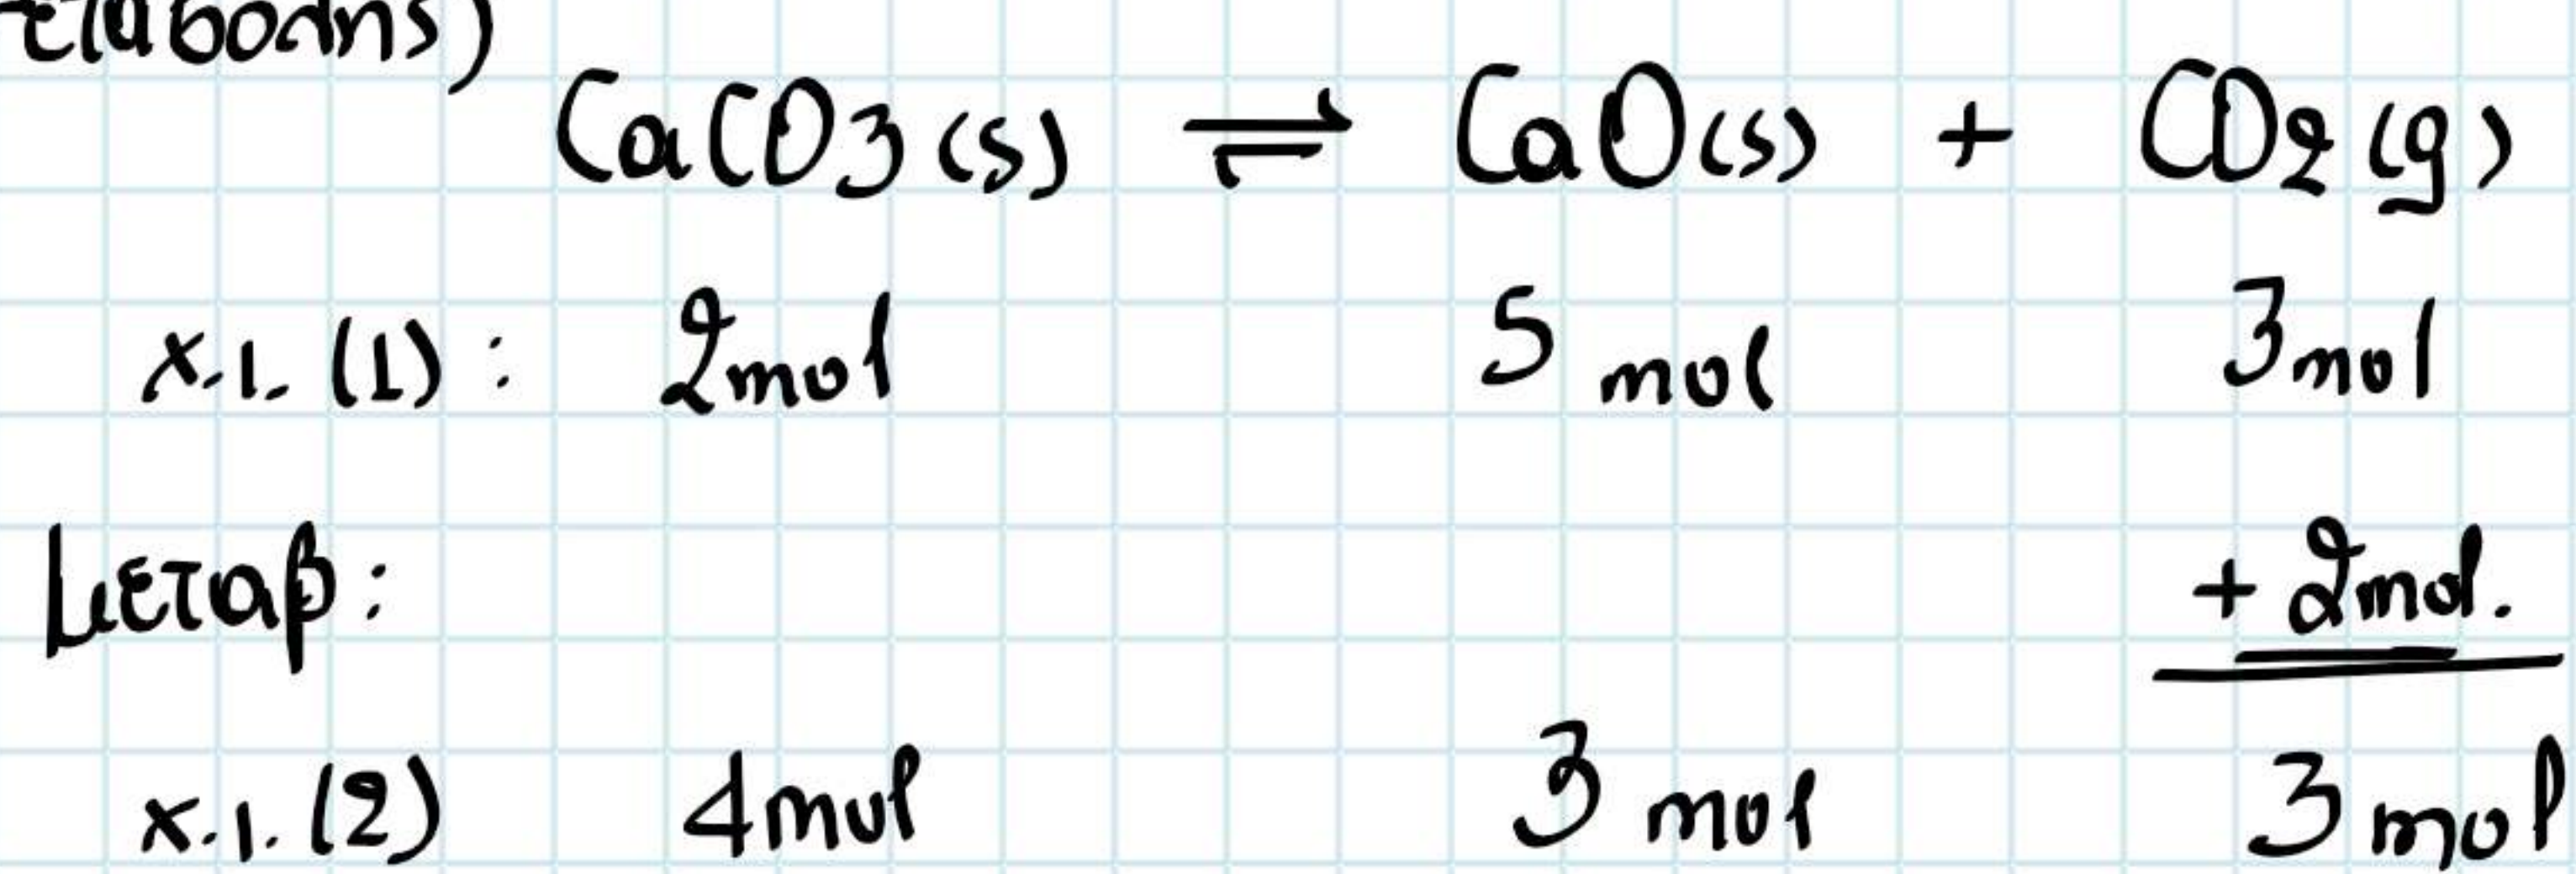 CaCO3 (s) ⇌ CaO(s) + CO2 (g)
x.ι. (1) : 2mol 5 mol 3mol
Μεταβ: + 2mol.
x.ι. (2) 4mol 3 mol 3 mol